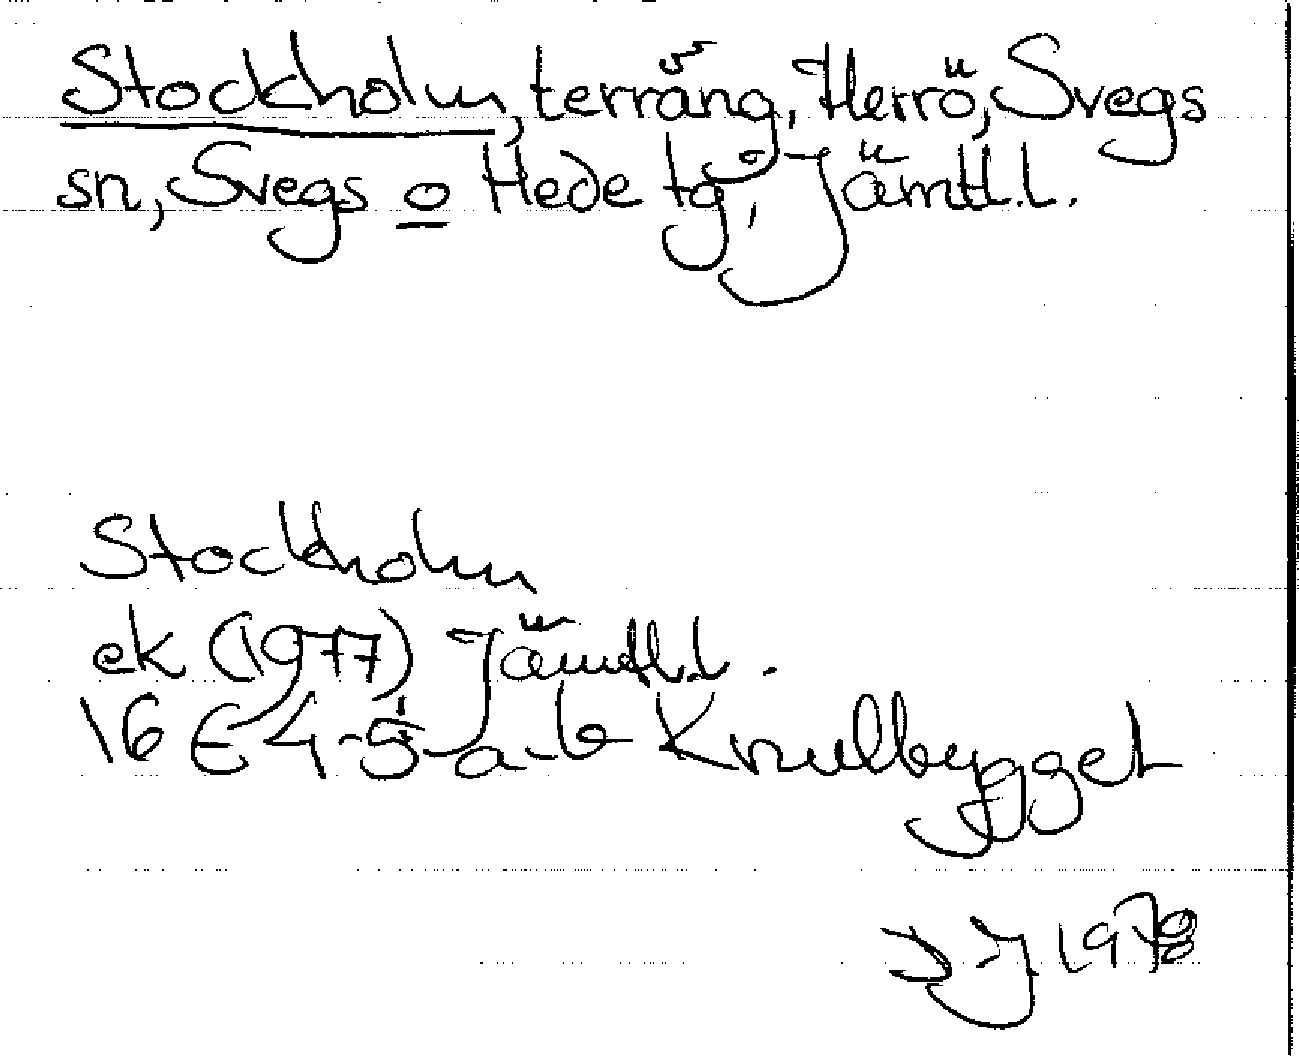 Stockholm, terräng, Herrö, Svegs
sn, Svegs o Hede tg, Jämtl.l.
Stockholm
ek (1977) Jämtl.l.
16 E 4-5 a-b Knulbygget
1978